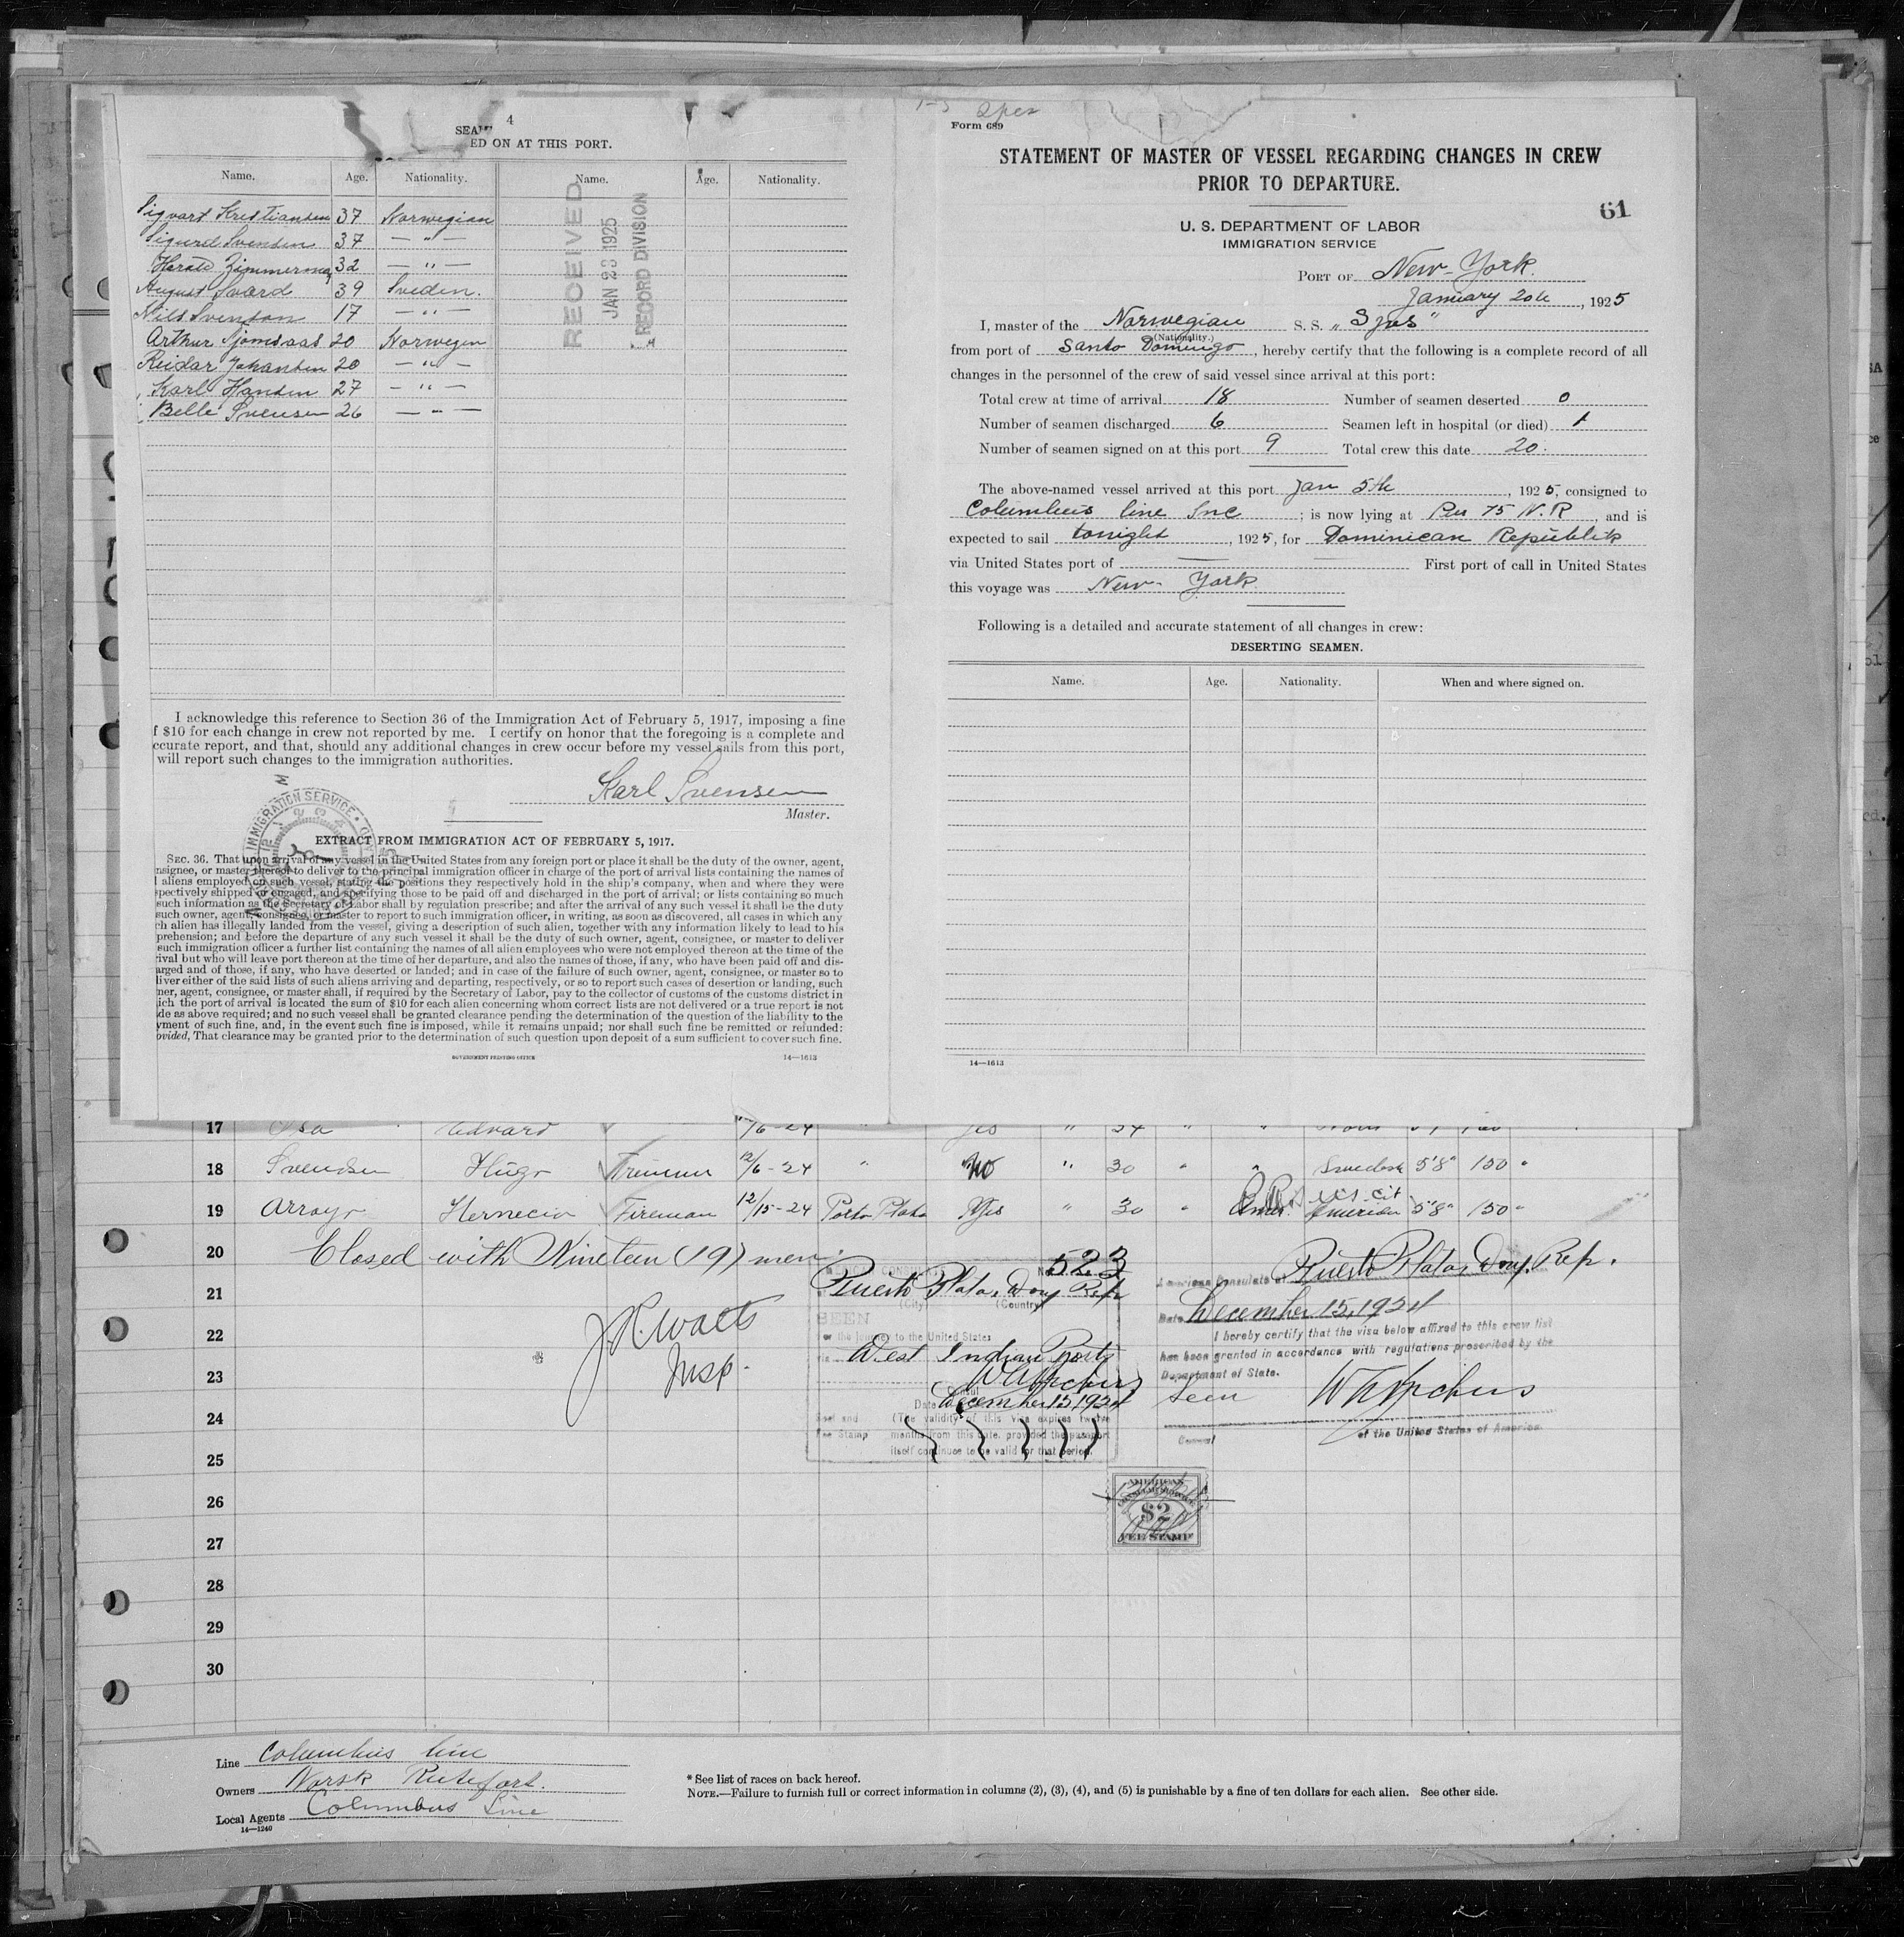 4
SEA
ED ON AT THIS PORT.
Name. Age. Nationality. Name. Age. Nationality.
Sigvart Kristiansen 37 Norwegian
Sigurd Svensen 37 — " —
Harald 32 — " —
August Svard 39 Sveden.
Nils Svenson 17 — " —
Arthur 20 Norwegen
Reidar Johansen 20 — " —
Karl Hansen 27 — " —
Belle Svensen 26 — " —
RECEIVED
JAN 23 1925
RECORD DIVISION
I acknowledge this reference to Section 36 of the Immigration Act of February 5, 1917, imposing a fine
f $10 for each change in crew not reported by me. I certify on honor that the foregoing is a complete and
ccurate report, and that, should any additional changes in crew occur before my vessel sails from this port,
will report such changes to the immigration authorities.
Karl Svensen
Master.
IMMIGRATION SERVICE
EXTRACT FROM IMMIGRATION ACT OF FEBRUARY 5, 1917.
SEC. 36. That upon arrival of any vessel in the United States from any foreign port or place it shall be the duty of the owner, agent,
nsignee, or master thereof to deliver to the principal immigration officer in charge of the port of arrival lists containing the names of
l aliens employed on such vessel, stating the positions they respectively hold in the ship's company, when and where they were
spectively shipped or engaged, and specifying those to be paid off and discharged in the port of arrival; or lists containing so much
such information as the Secretary of Labor shall by regulation prescribe; and after the arrival of any such vessel it shall be the duty
such owner, agent, consignee, or master to report to such immigration officer, in writing, as soon as discovered, all cases in which any
ch alien has illegally landed from the vessel, giving a description of such alien, together with any information likely to lead to his
prehension; and before the departure of any such vessel it shall be the duty of such owner, agent, consignee, or master to deliver
such immigration officer a further list containing the names of all alien employees who were not employed thereon at the time of the
ival but who will leave port thereon at the time of her departure, and also the names of those, if any, who have been paid off and dis-
arged and of those, if any, who have deserted or landed; and in case of the failure of such owner, agent, consignee, or master so to
liver either of the said lists of such aliens arriving and departing, respectively, or so to report such cases of desertion or landing, such
ner, agent, consignee, or master shall, if required by the Secretary of Labor, pay to the collector of customs of the customs district in
ich the port of arrival is located the sum of $10 for each alien concerning whom correct lists are not delivered or a true report is not
de as above required; and no such vessel shall be granted clearance pending the determination of the question of the liability to the
yment of such fine, and, in the event such fine is imposed, while it remains unpaid; nor shall such fine be remitted or refunded:
ovided, That clearance may be granted prior to the determination of such question upon deposit of a sum sufficient to cover such fine.
GOVERNMENT PRINTING OFFICE 14—1613
Form 689
STATEMENT OF MASTER OF VESSEL REGARDING CHANGES IN CREW
PRIOR TO DEPARTURE.
61
U. S. DEPARTMENT OF LABOR
IMMIGRATION SERVICE
PORT OF New-York.
January 20th, 1925
I, master of the Norwegian S. S. "Sjus"
(Nationality.)
from port of Santo Domingo, hereby certify that the following is a complete record of all
changes in the personnel of the crew of said vessel since arrival at this port:
Total crew at time of arrival 18 Number of seamen deserted 0
Number of seamen discharged 6 Seamen left in hospital (or died) 1
Number of seamen signed on at this port 9 Total crew this date 20.
The above-named vessel arrived at this port Jan 5th, 1925, consigned to
Columbus line Inc; is now lying at Pier 75 N.R, and is
expected to sail tonight, 1925, for Dominican Republik
via United States port of — First port of call in United States
this voyage was New-York.
Following is a detailed and accurate statement of all changes in crew:
DESERTING SEAMEN.
Name. Age. Nationality. When and where signed on.
14—1613
17 Edvard /6-24 " Yes " 34 " "
18 Svendsen Hugo Trimmer 12/6-24 " No " 30 " " Swedish 5'8" 150 "
19 Arroyo Fireman 12/15-24 Porto Plata Yes " 30 " U.S. Cit American 5'8" 150 "
20 Closed with Nineteen (19) men.
21
22
23
24
25
26
27
28
29
30
J.R. Watts
Insp.
No. 523
Puerto Plata, Dom. Rep.
(City) (Country)
SEEN
For the journey to the United States
via West Indian Ports
Consul
Date December 15, 1924
(The validity of this visa expires twelve
months from this date, provided the passport
itself continue to be valid for that period.
Seal and
Fee Stamp
American Consulate at Puerto Plata, Dom. Rep.
Date December 15, 1924
I hereby certify that the visa below affixed to this crew list
has been granted in accordance with regulations prescribed by the
Department of State.
Seen
Consul of the United States of America
AMERICAN
CONSULAR SERVICE
$2
FEE STAMP
Line Columbus line
Owners Norsk Rutefart.
Local Agents Columbus Line
14—1240
* See list of races on back hereof.
NOTE.—Failure to furnish full or correct information in columns (2), (3), (4), and (5) is punishable by a fine of ten dollars for each alien. See other side.